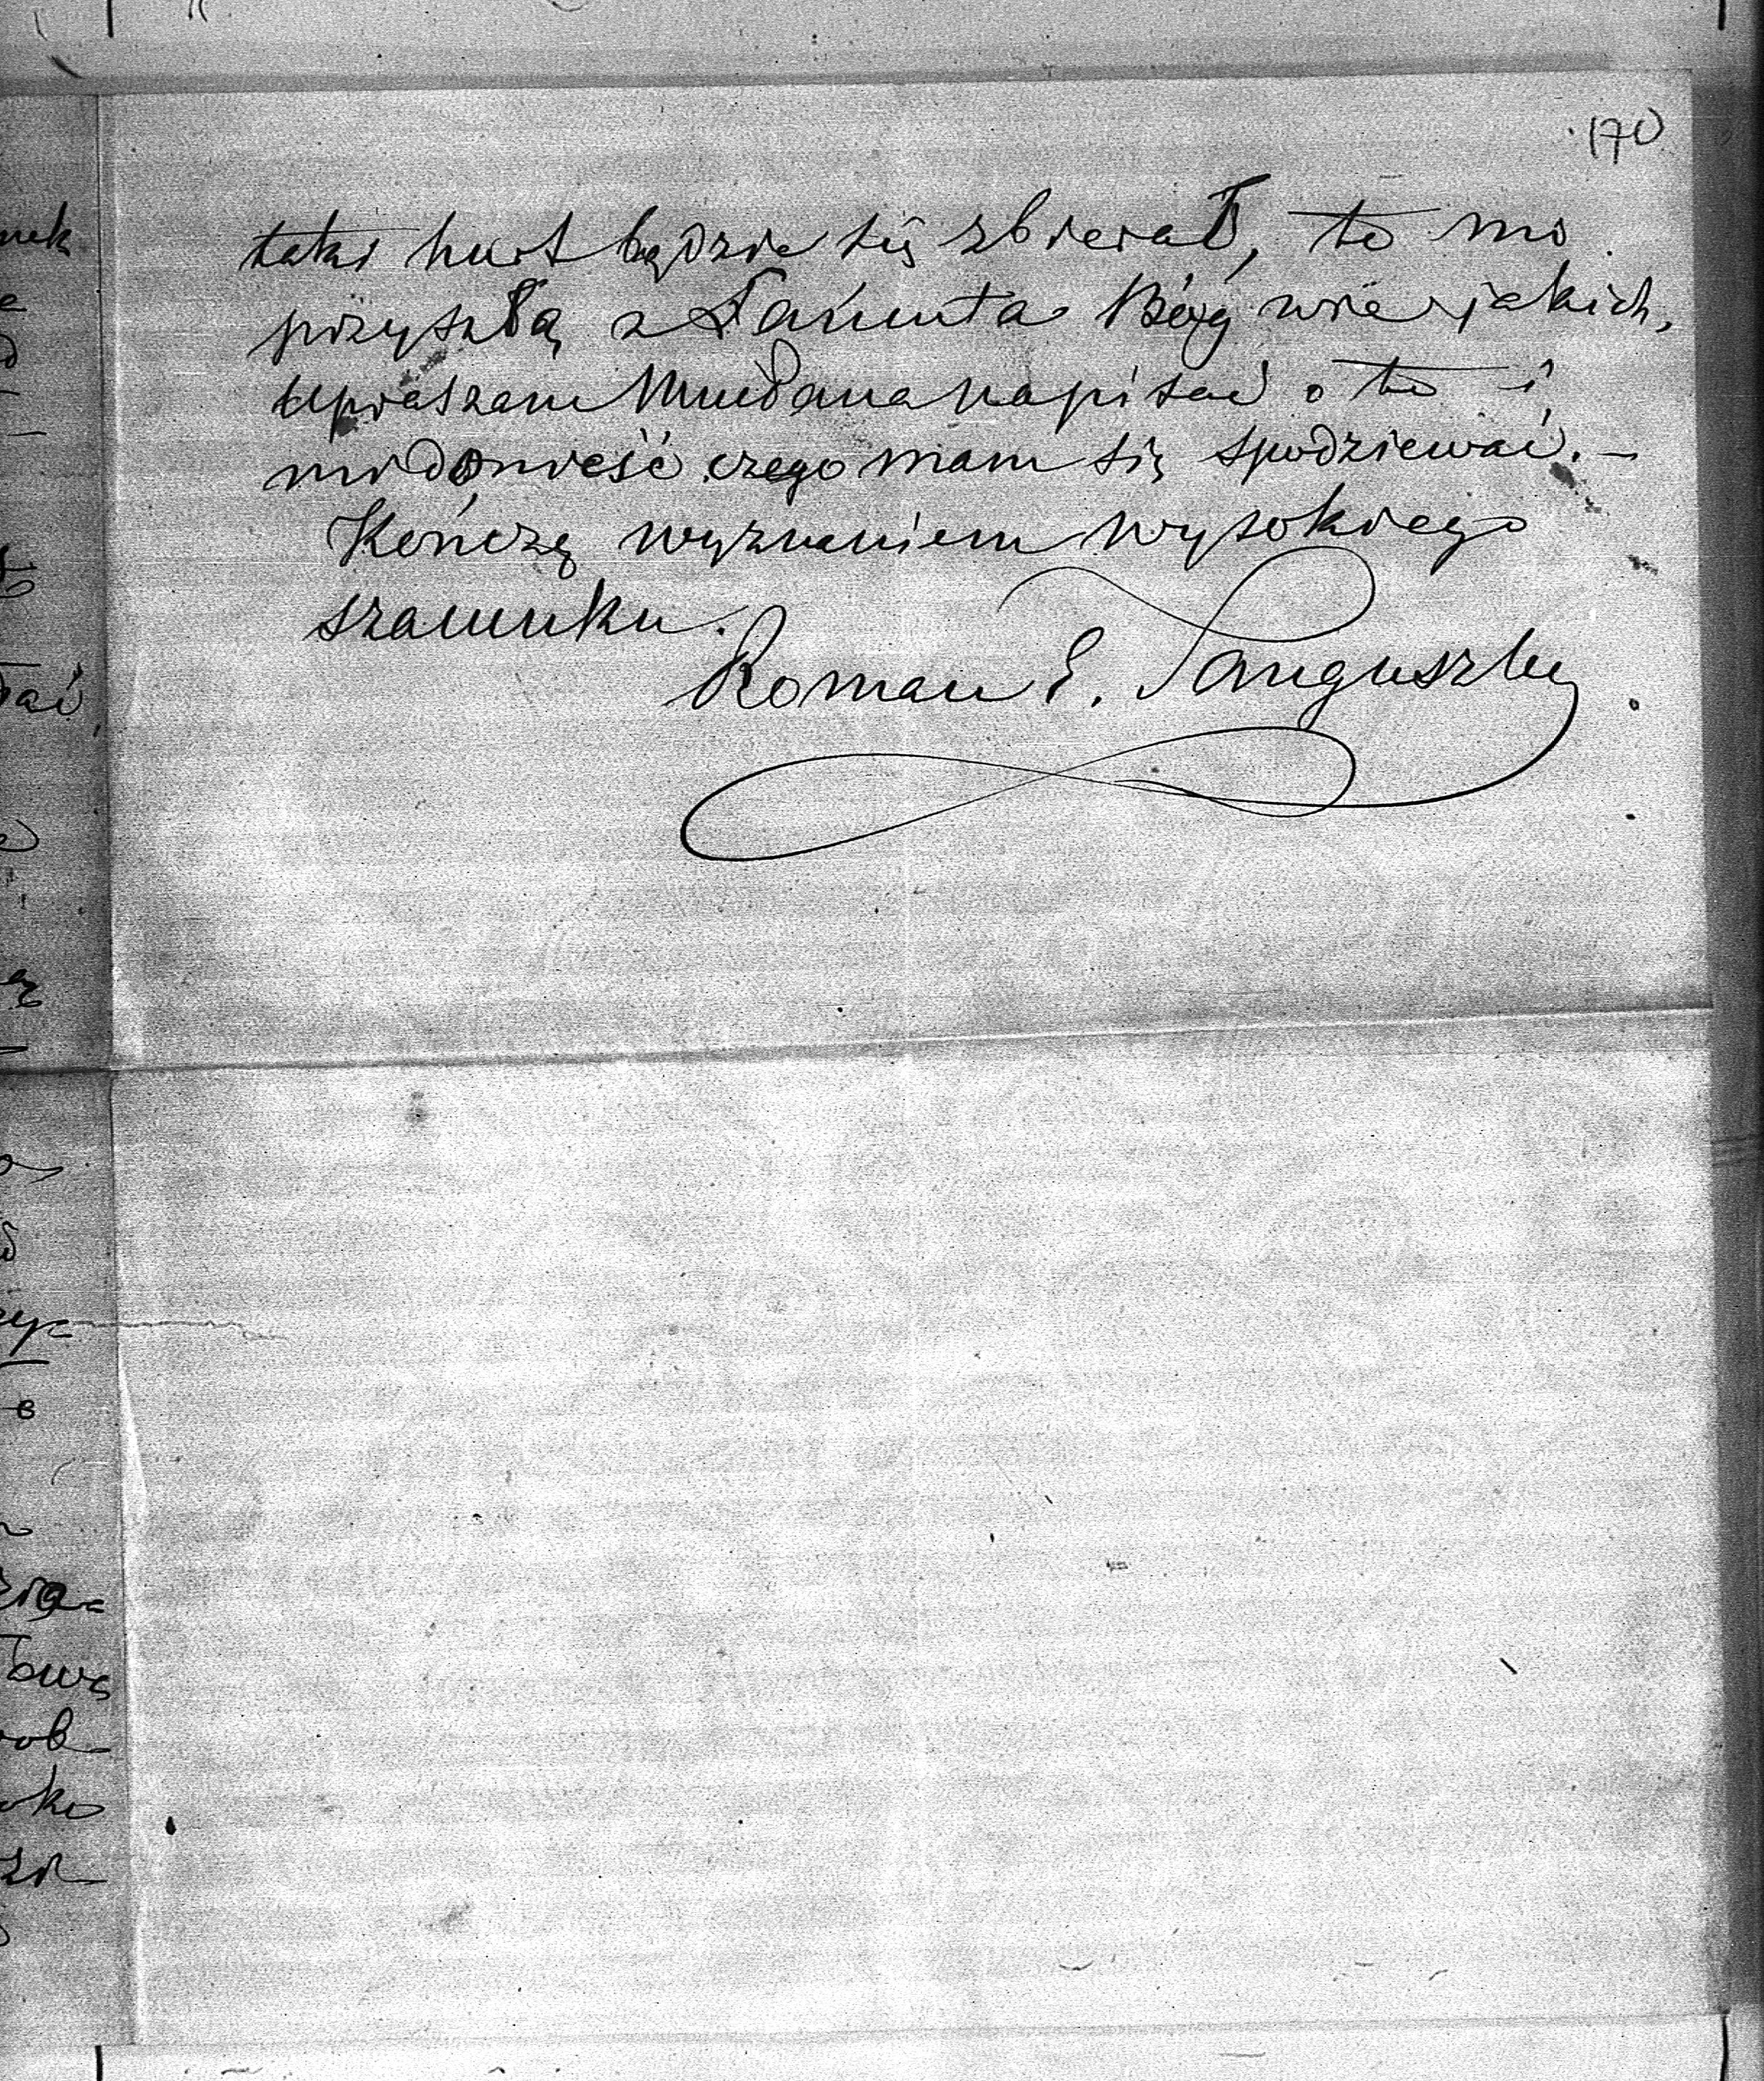 170
taki hurt będzie się zbierał, to mi
przyszłą z Łańcuta Bóg wie jakich,
upraszam Mwdana napisać o to i
mi donieść czego mam się spodziewać. –
Kończę wyznaniem wysokiego
szacunku.
Roman E. Sanguszko